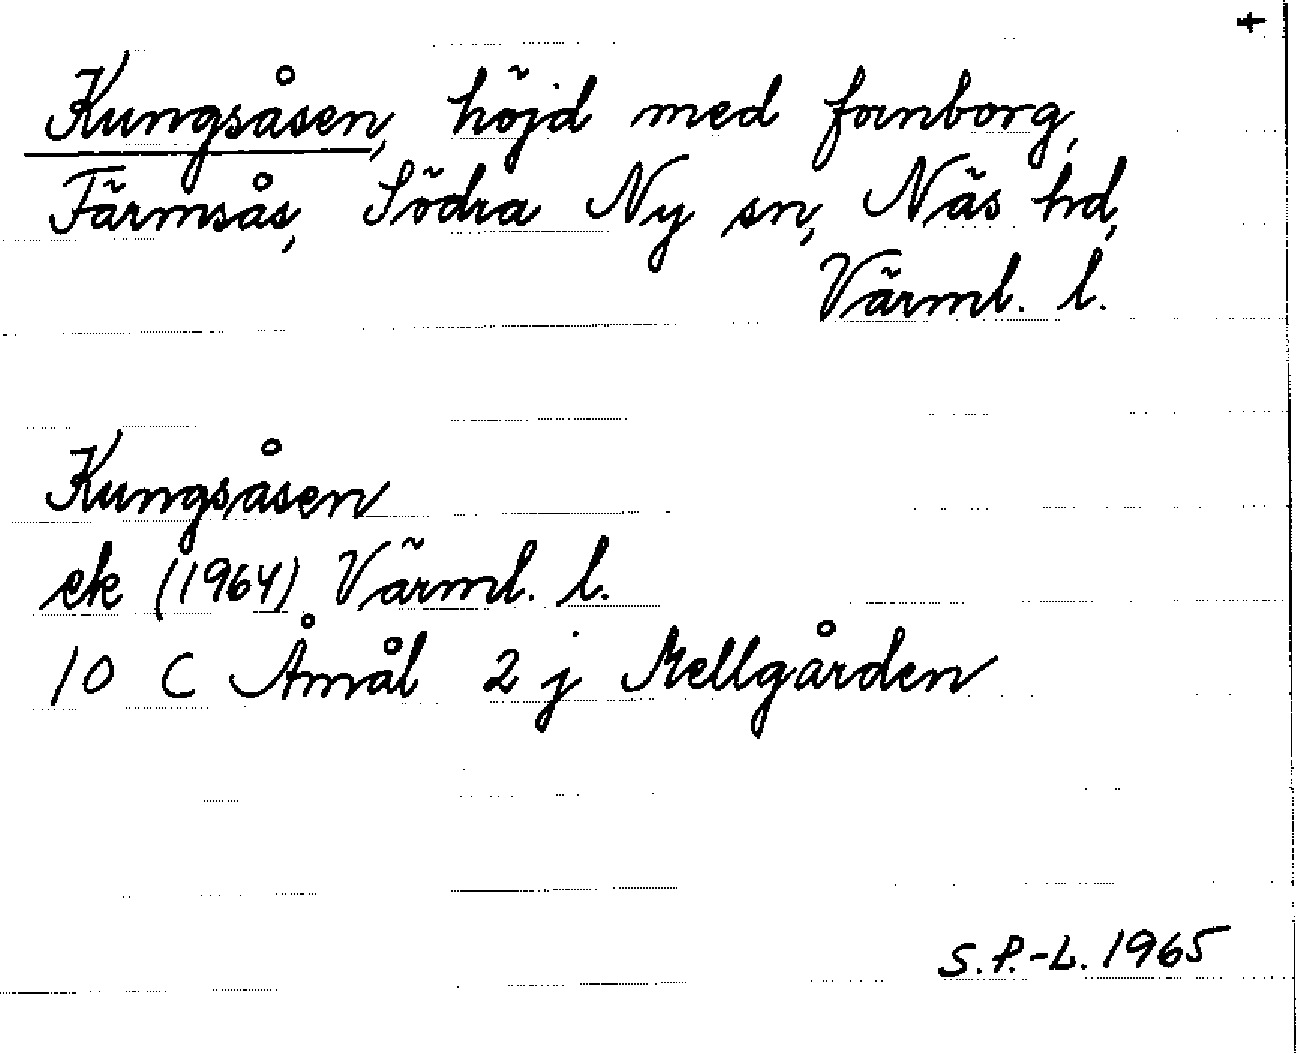 +
Kungsåsen, höjd med fornborg,
Färmsås, Södra Ny sn, Näs hd,
Värml. l.
Kungsåsen
ek (1964) Värml. l.
10 C Åmål 2 j Mellgården
S.P.-L. 1965